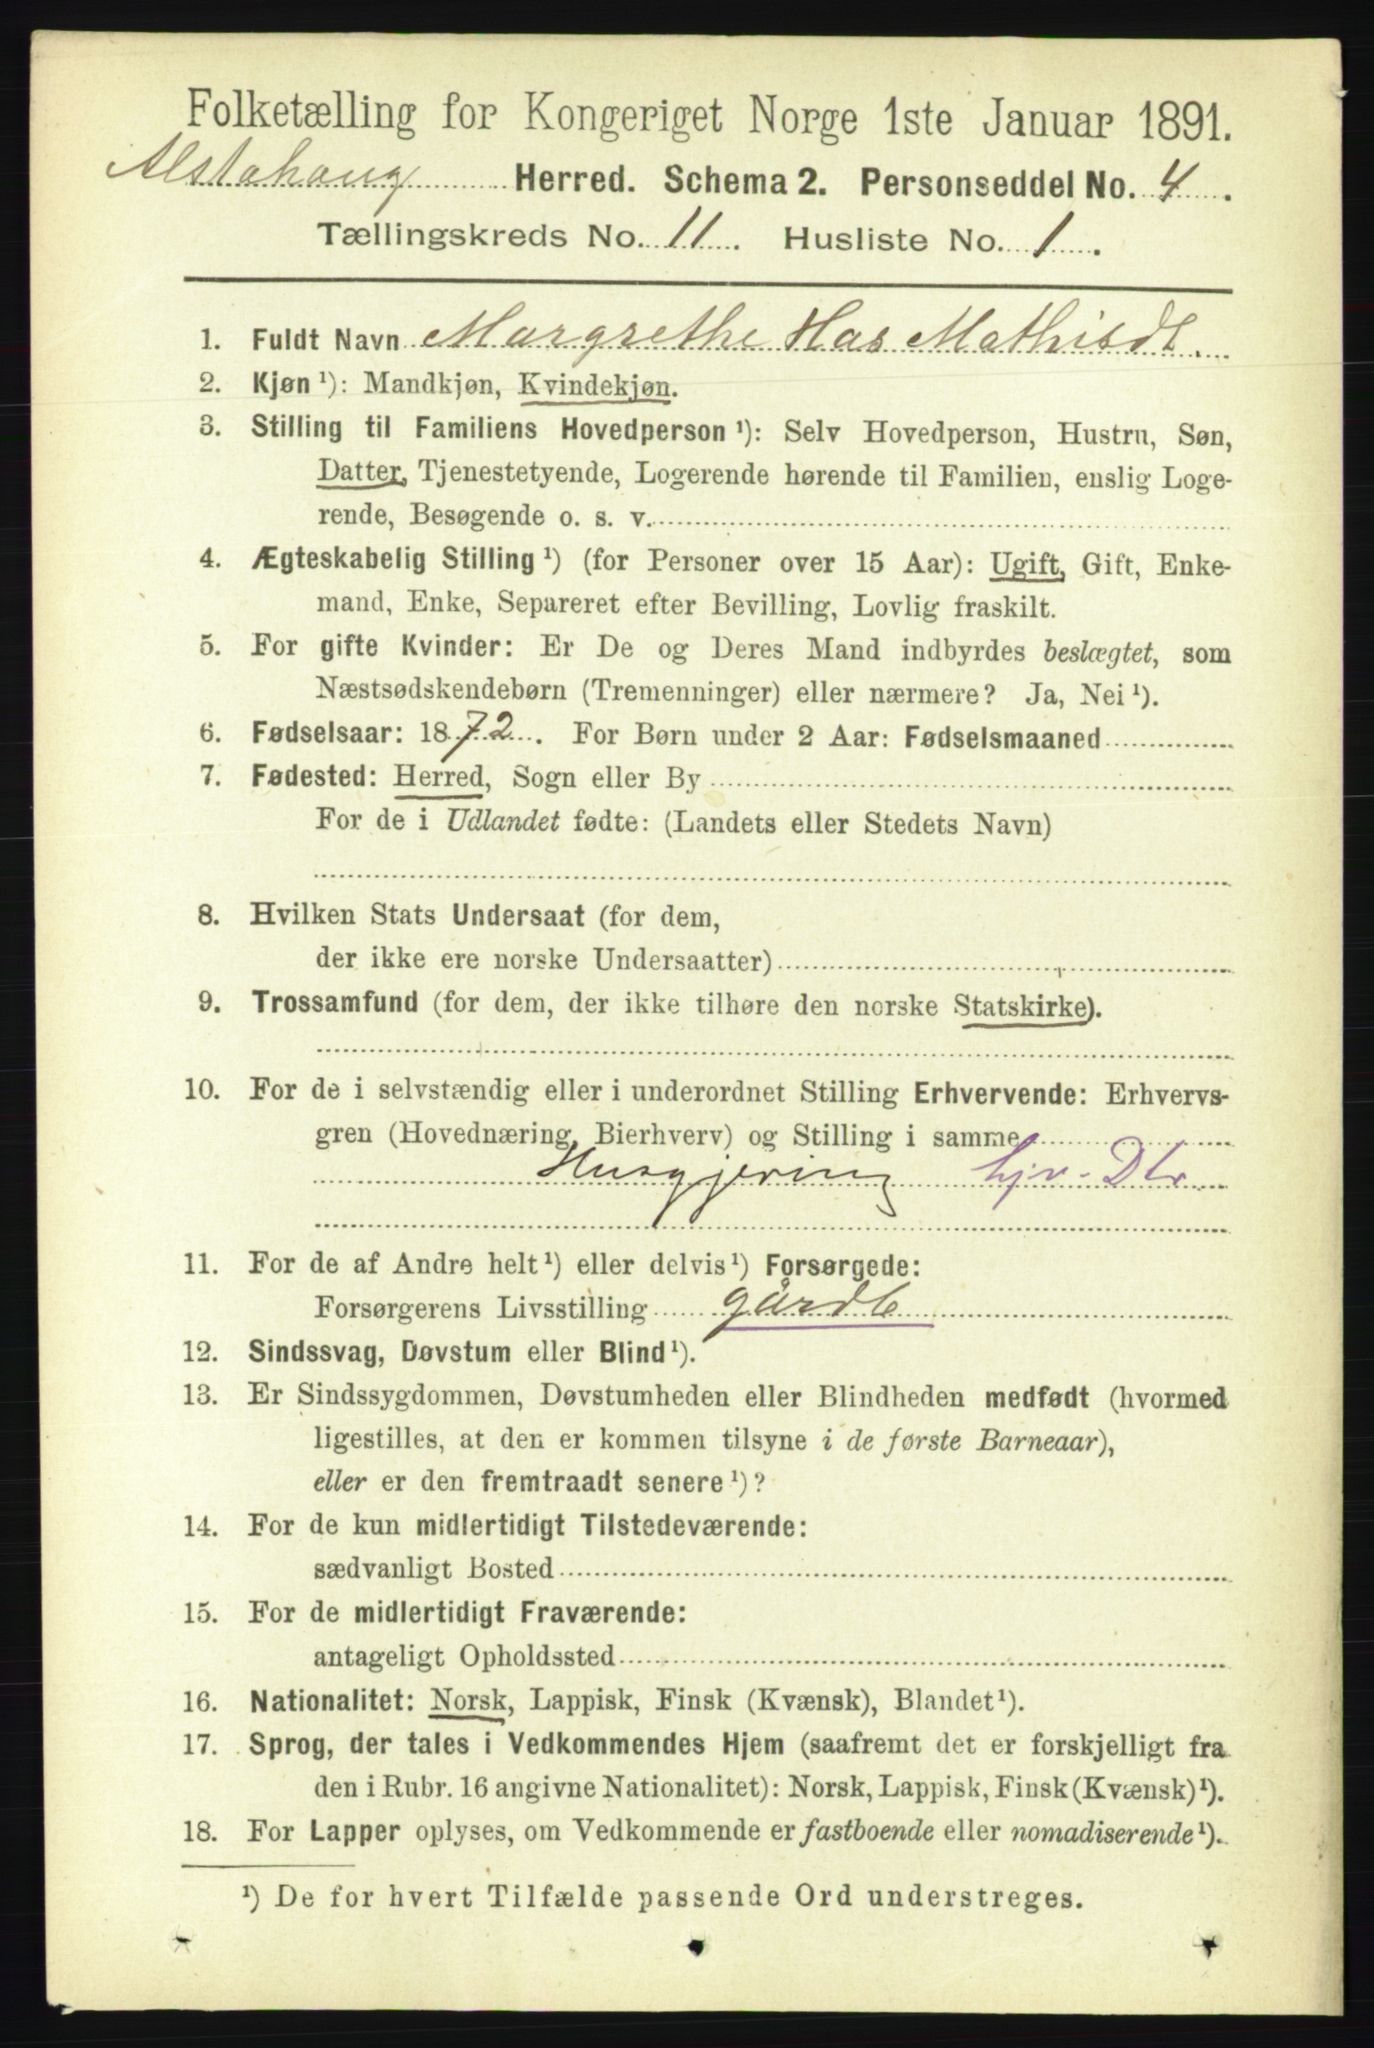 Folketælling for Kongeriget Norge 1ste Januar 1891.
Alstahaug Herred. Schema 2. Personseddel No. 4.
Tællingskreds No. 11. Husliste No. 1.
1. Fuldt Navn Margrethe Has Mathisdt.
2. Kjøn ¹): Mandkjøn, Kvindekjøn.
3. Stilling til Familiens Hovedperson ¹): Selv Hovedperson, Hustru, Søn,
Datter, Tjenestetyende, Logerende hørende til Familien, enslig Loge-
rende, Besøgende o. s. v.
4. Ægteskabelig Stilling ¹) (for Personer over 15 Aar): Ugift, Gift, Enke-
mand, Enke, Separeret efter Bevilling, Lovlig fraskilt.
5. For gifte Kvinder: Er De og Deres Mand indbyrdes beslægtet, som
Næstsødskendebørn (Tremenninger) eller nærmere? Ja, Nei ¹).
6. Fødselsaar: 1872. For Børn under 2 Aar: Fødselsmaaned
7. Fødested: Herred, Sogn eller By
For de i Udlandet fødte: (Landets eller Stedets Navn)
8. Hvilken Stats Undersaat (for dem,
der ikke ere norske Undersaatter)
9. Trossamfund (for dem, der ikke tilhøre den norske Statskirke).
10. For de i selvstændig eller i underordnet Stilling Erhvervende: Erhvervs-
gren (Hovednæring, Bierhverv) og Stilling i samme
Husgjerning hjv. Dtr.
11. For de af Andre helt ¹) eller delvis ¹) Forsørgede:
Forsørgerens Livsstilling gårdb
12. Sindssvag, Døvstum eller Blind ¹).
13. Er Sindssygdommen, Døvstumheden eller Blindheden medfødt (hvormed
ligestilles, at den er kommen tilsyne i de første Barneaar),
eller er den fremtraadt senere ¹)?
14. For de kun midlertidigt Tilstedeværende:
sædvanligt Bosted
15. For de midlertidigt Fraværende:
antageligt Opholdssted
16. Nationalitet: Norsk, Lappisk, Finsk (Kvænsk), Blandet ¹).
17. Sprog, der tales i Vedkommendes Hjem (saafremt det er forskjelligt fra
den i Rubr. 16 angivne Nationalitet): Norsk, Lappisk, Finsk (Kvænsk) ¹).
18. For Lapper oplyses, om Vedkommende er fastboende eller nomadiserende ¹).
¹) De for hvert Tilfælde passende Ord understreges.